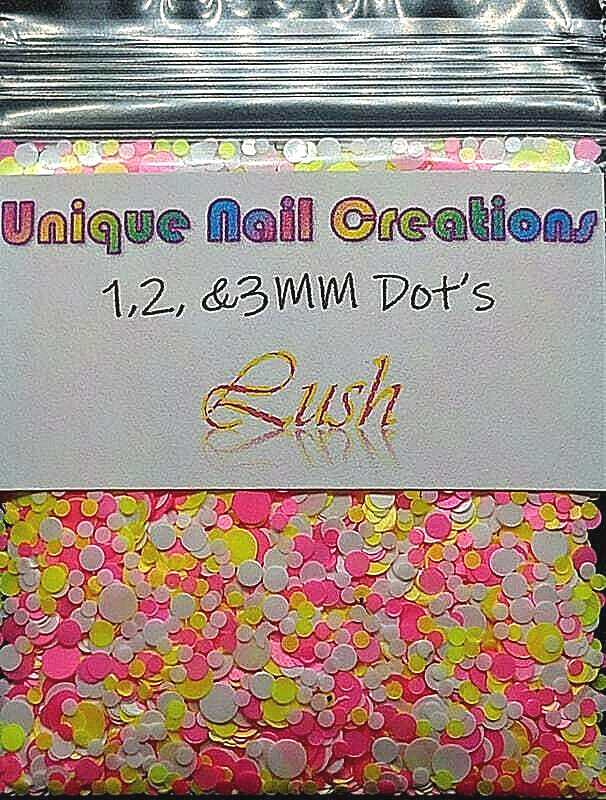 Unique Nail Creations
1,2, &3MM Dot's
Lush